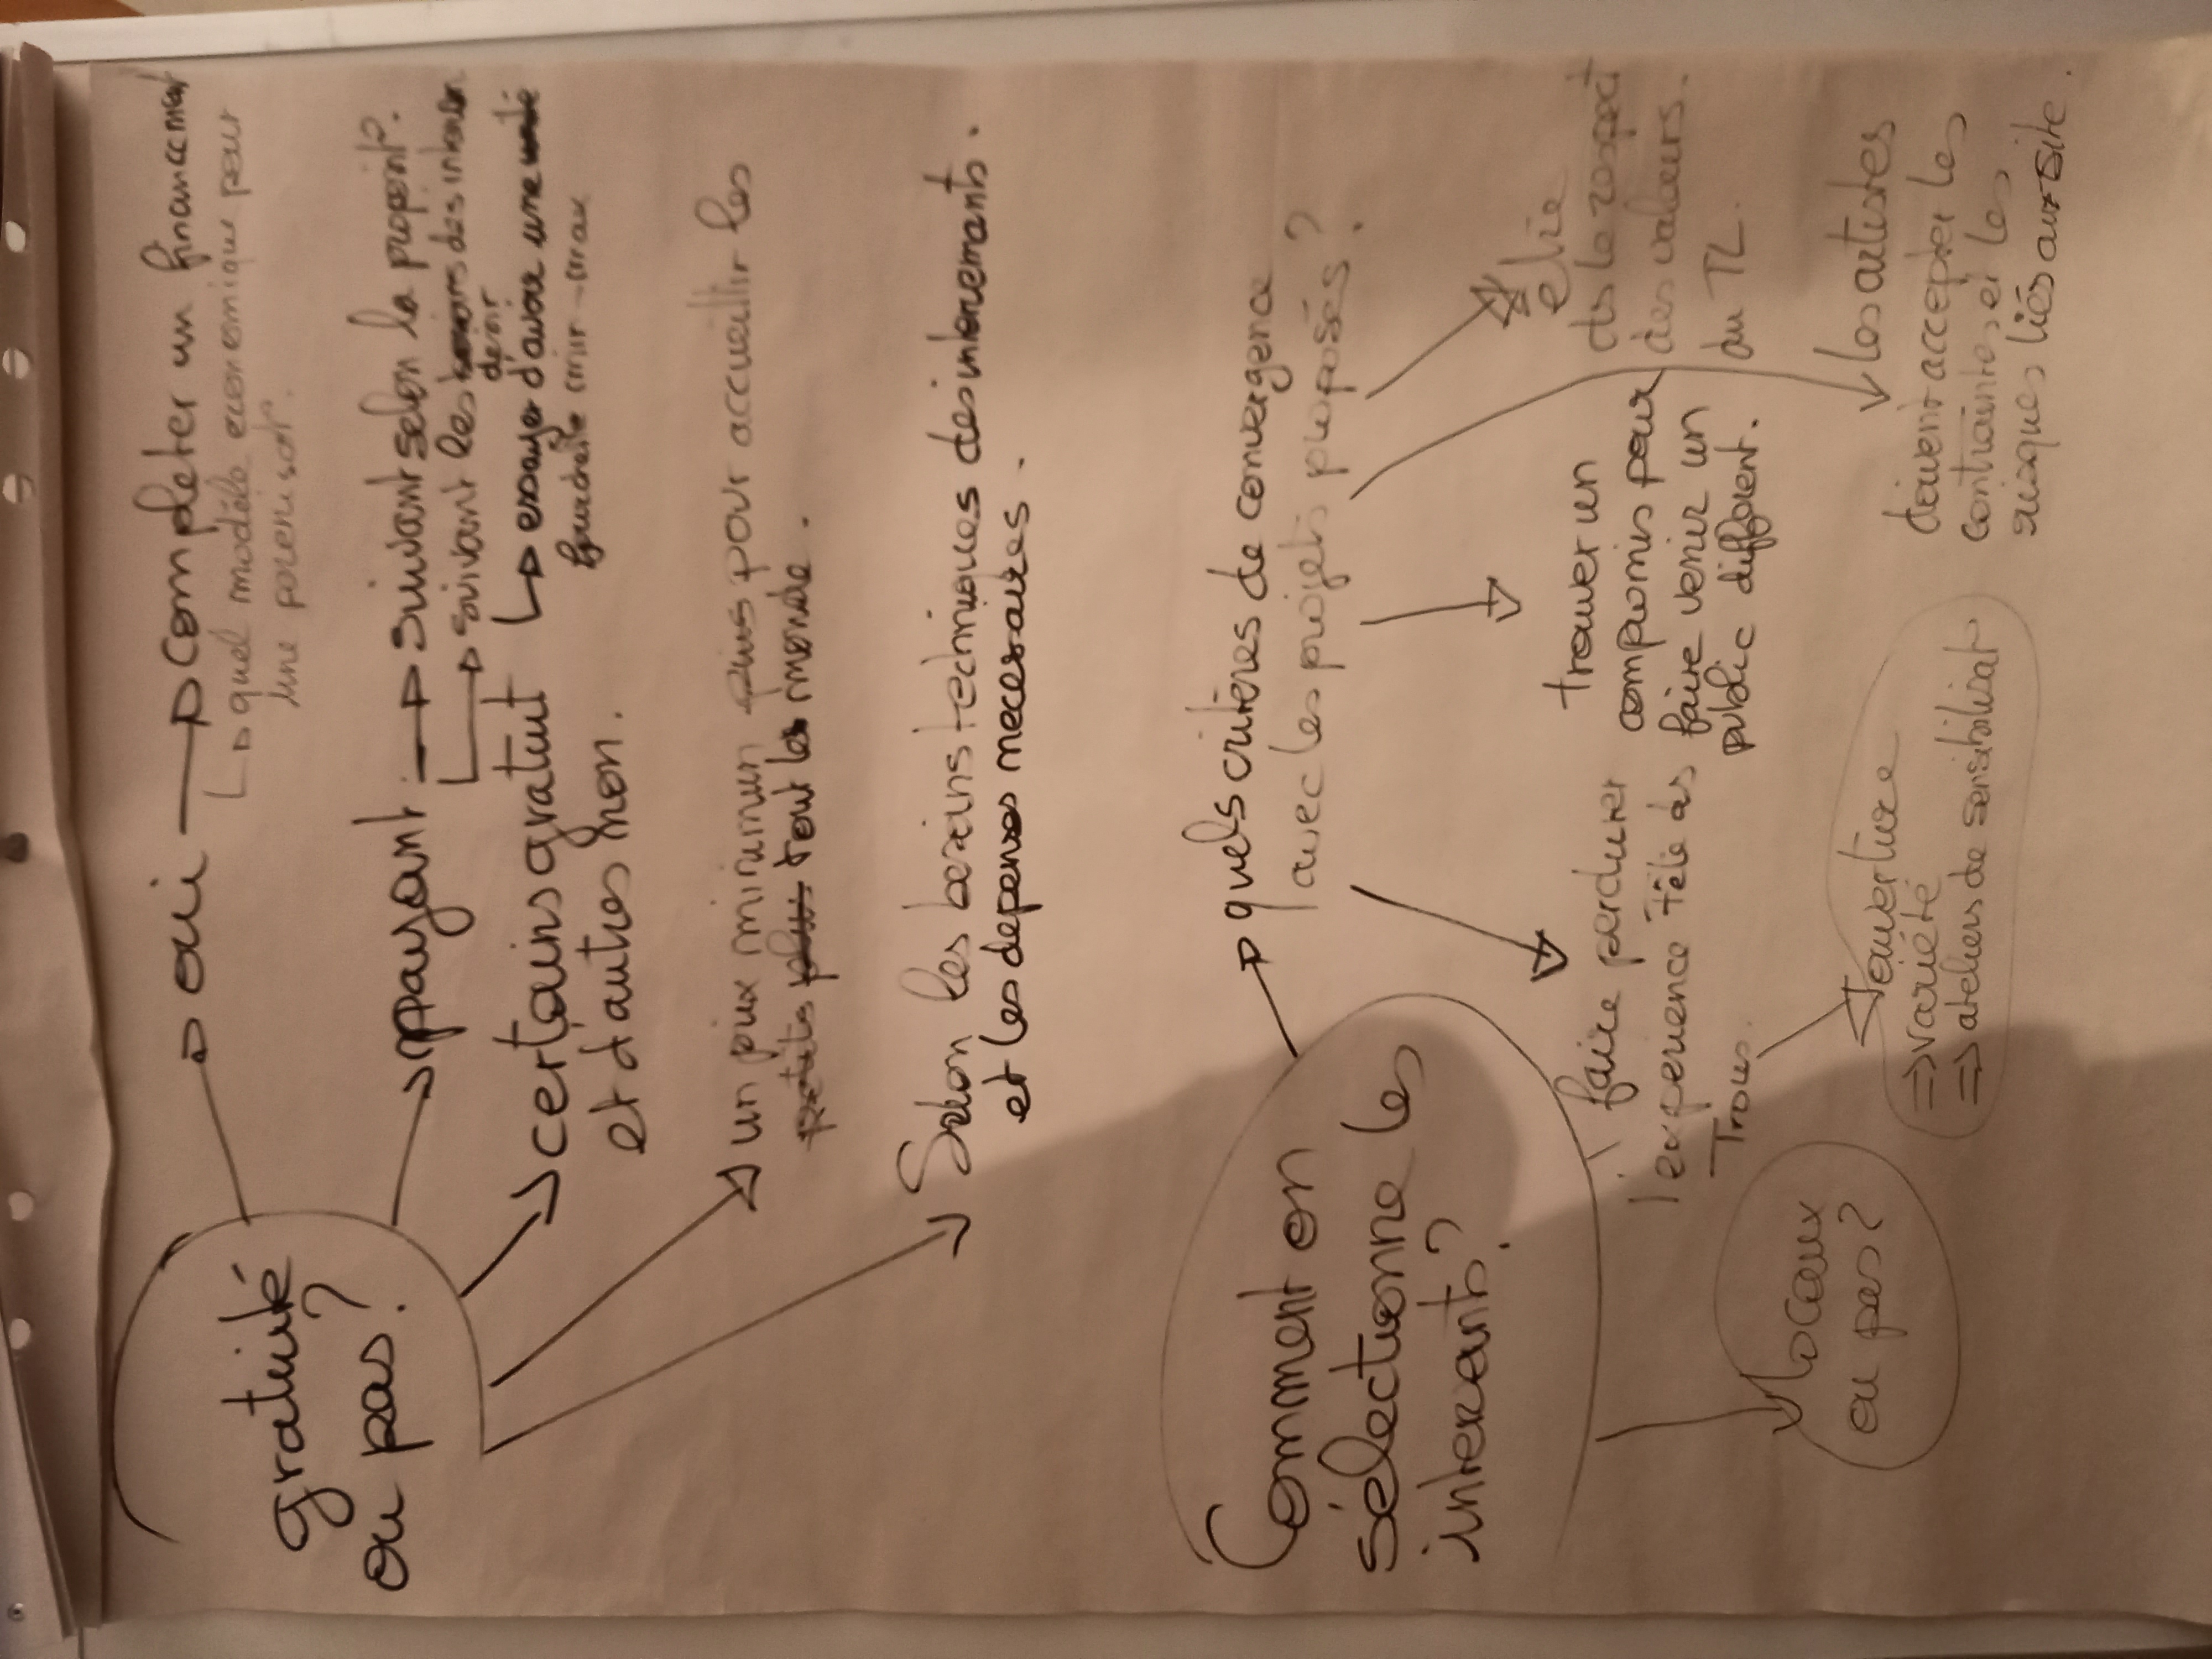 gratuité
ou pas ?
oui
completer un financement
quel modèle economique pour
une perensot.
payant
suivant selon la propri%.
suivant les des interven
desir
essayer d'avoir une
fourchette mini-max
certains gratuit
et d'autres non.
un prix minimum pour accueillir les
tout le monde.
Selon les besoins techniques des intervenants.
et les depenses necessaires.
Comment on
sélectionne les
intervenants ?
quels critères de convergence
avec les projets proposés ?
faire perdurer
l'experience Tête des
Trous.
trouver un
compromis pour
faire venir un
public différent.
être
ds le respect
des valeurs
du TL.
les artistes
doivent accepter les
contraintes et les
risques liés au site.
locaux
ou pas ?
ouverture
⇒ variété
⇒ ateliers de sensibilisat°